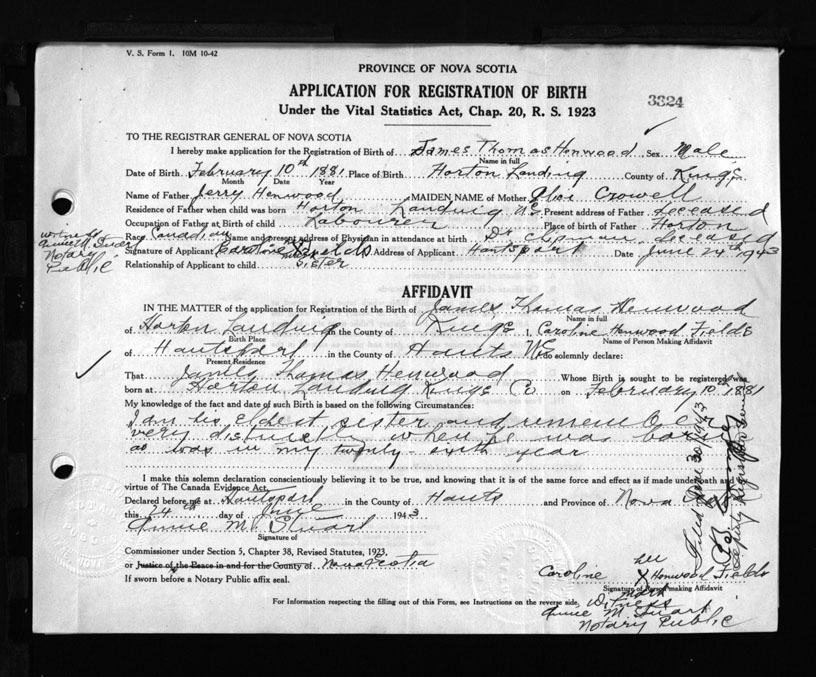 V. S. Form 1. 10M 10-42
PROVINCE OF NOVA SCOTIA
APPLICATION FOR REGISTRATION OF BIRTH
3324
Under the Vital Statistics Act, Chap. 20, R. S. 1923
TO THE REGISTRAR GENERAL OF NOVA SCOTIA
I hereby make application for the Registration of Birth of James Thomas Henwood Sex Male
Name in full
Date of Birth February 10th 1881 Place of Birth Horton Landing County of Kings
Month Date Year
Name of Father Jerry Henwood MAIDEN NAME of Mother Crowell
Residence of Father when child was born Horton Landing N.S. Present address of Father deceased
Occupation of Father at Birth of child Labourer Place of birth of Father Horton
Race Canadian Name and present address of Physician in attendance at birth Dr Chipman deceased
witness
Annie M. Stuart
Notary
Public
Signature of Applicant Caroline Fields Address of Applicant Hantsport Date June 24th 1943
Relationship of Applicant to child Sister
AFFIDAVIT
IN THE MATTER of the application for Registration of the Birth of James Thomas Henwood
Name in full
of Horton Landing in the County of Kings I, Caroline Henwood Fields
Birth Place Name of Person Making Affidavit
of Hantsport in the County of Hants N.S. do solemnly declare:
Present Residence
That James Thomas Henwood Whose Birth is sought to be registered was
born at Horton Landing Kings Co. on February 10th 1881
My knowledge of the fact and date of such Birth is based on the following Circumstances:
I am his eldest sister and remember
very distinctly when he was born
as was in my twenty-sixth year
I make this solemn declaration conscientiously believing it to be true, and knowing that it is of the same force and effect as if made under oath and by
virtue of The Canada Evidence Act.
Declared before me at Hantsport in the County of Hants and Province of Nova Scotia
this 24th day of June 1943
Annie M. Stuart
Signature of
Commissioner under Section 5, Chapter 38, Revised Statutes, 1923.
or Justice of the Peace in and for the County of Nova Scotia
If sworn before a Notary Public affix seal.
her
Caroline X Henwood Fields
Signature of Person making Affidavit
mark
For Information respecting the filling out of this Form, see Instructions on the reverse side.
Witness
Annie M. Stuart
Notary Public
Filed June 30 1943
Deputy Registrar General